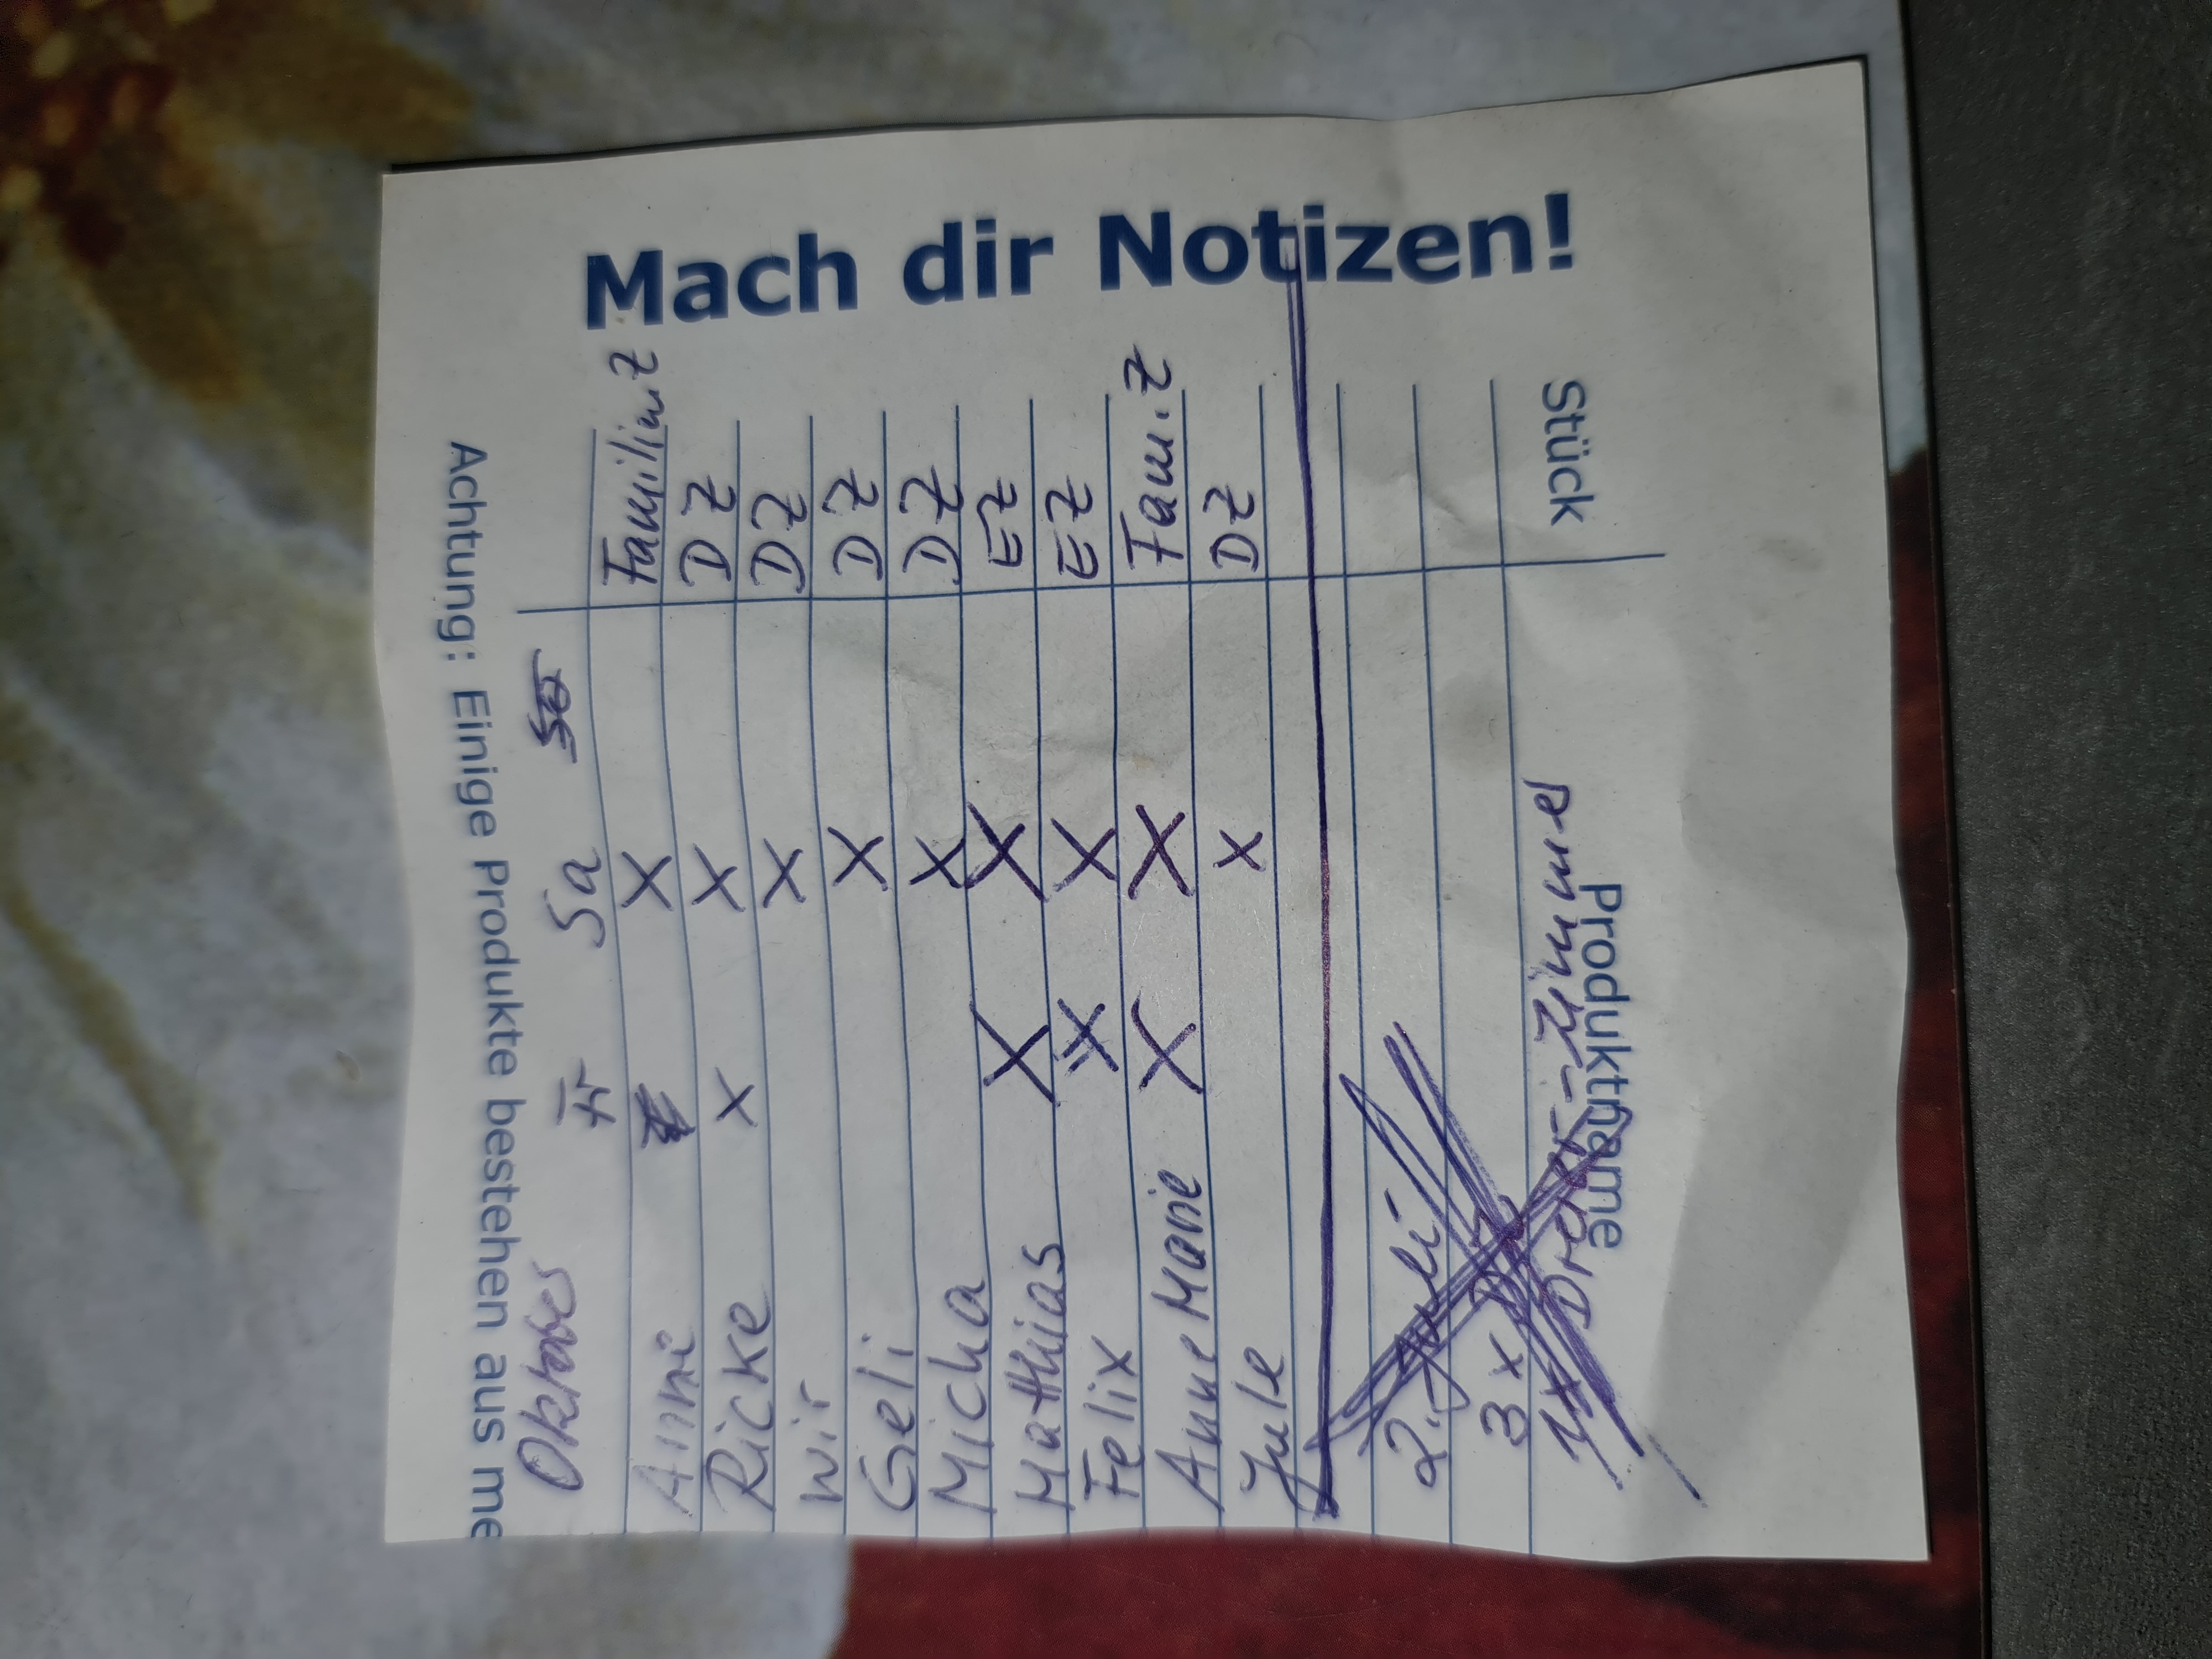 Mach dir Notizen!
Oktober Fr Sa
Anni X Familien.Z
Ricke X X DZ
Wir X DZ
Geli X DZ
Micha X DZ
Matthias X X EZ
Felix X X EZ
AnneMarie X X Fam.Z
Jule X DZ
2. Juli
3x
1x Dreier-Zimmer
Stück
Produktname
Achtung: Einige Produkte bestehen aus me